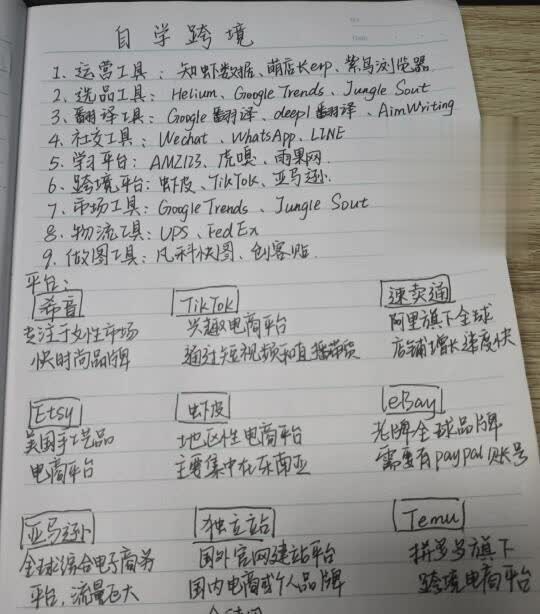 自学跨境
1、运营工具：知虾数据、萌店kerp、紫鸟浏览器
2、选品工具：Helium、Google Trends、Jungle Sout
3、翻译工具：Google翻译、deepl翻译、AimWriting
4、社交工具：Wechat、WhatsApp、LINE
5、学习平台：AMZ123、虎嗅、雨果网.
6、跨境平台：虾皮、TikTok、亚马逊.
7、市场工具：Google Trends、Jungle Sout
8、物流工具：UPS、FedEx
9、做图工具：凡科快图、创客贴.
平台：
希音 TikTok 速卖通
专注于女性市场 兴趣电商平台 阿里旗下全球
快时尚品牌 通过短视频和直播带货 店铺增长速度快
Etsy 虾皮 eBay
美国手工艺品 地区性电商平台 老牌全球品牌
电商平台 主要集中在东南亚 需要有paypal账号
亚马逊 独立站 Temu
全球综合电子商务 国外官网建站平台 拼多多旗下
平台，流量巨大 国内电商或个人品牌 跨境电商平台